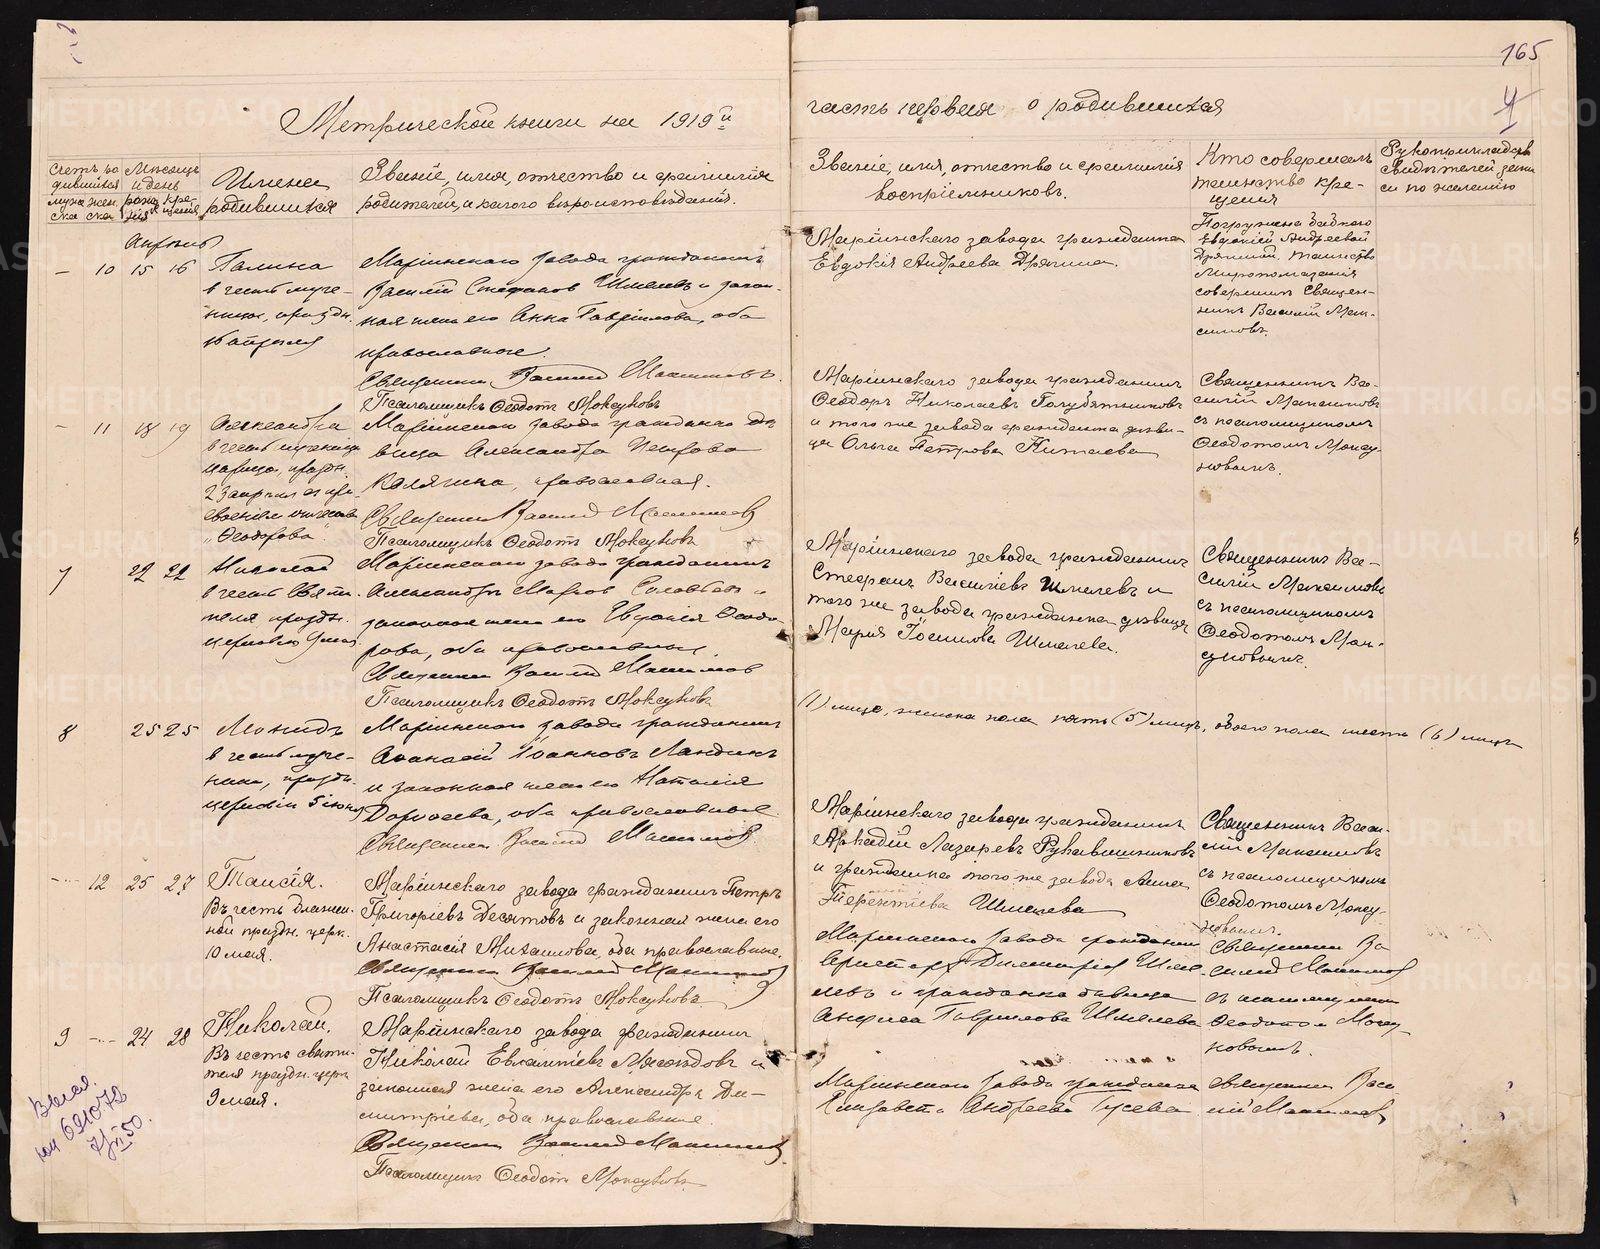 165
4
Метрической книги на 1919 й
часть первая о родившихся
Счетъ ро
дившихся
муж жен
ска ска
Мѣсяцъ
и день
рожд кре
нія щенія
Имена
родившихся
Званіе, имя, отчество и фамилія
родителей, и какого вѣроисповѣданія.
Званіе, имя, отчество и фамилія
воспріемниковъ.
Кто совершалъ
таинство кре-
щенія
Рукоприкладств
свидѣтелей запи
си по желанію
Апрѣль
– 10 15 16
Галина
в честь муче-
ницы, праздн.
16 апрѣля
Маріинскаго завода гражданинъ
Василій Стефановъ Шмелевъ и закон-
ная жена его Анна Гавріилова, оба
православные.
Священникъ Василій Максимовъ.
Псаломщикъ Ѳеодотъ Моксуновъ
Маріинскаго завода гражданка
Евдокія Андреева Дрягина.
Погружена бабкою
Евдокіей Андреевой
Дрягиной. Таинство
Миропомазанія
совершилъ Священ-
никъ Василій Мак-
симовъ.
– 11 18 19
Александра
в честь мученицы
царицы, праздн.
23 апрѣля
"Ѳеодорова".
Маріинскаго завода гражданка дѣ-
вица Александра Петрова
Калягина, православная.
Священникъ Василій Максимовъ
Псаломщикъ Ѳеодотъ Моксуновъ
Маріинскаго завода гражданинъ
Ѳеодоръ Николаевъ Голубятниковъ
и того же завода гражданка дѣви-
ца Ольга Петрова Китаева
Священникъ Ва-
силій Максимовъ
съ псаломщикомъ
Ѳеодотомъ Моксу-
новымъ.
7 22 22
Николай
в честь Святи-
теля праздн.
церковью 9 мая.
Маріинскаго завода гражданинъ
Александръ Марковъ Соловьевъ и
законная жена его Евдокія Ѳеодо-
рова, оба православные.
Священникъ Василій Максимовъ
Псаломщикъ Ѳеодотъ Моксуновъ
Маріинскаго завода гражданинъ
Стефанъ Василіевъ Шмелевъ и
того же завода гражданка дѣвица
Марія Іосифова Шмелева.
Священникъ Ва-
силій Максимовъ
съ псаломщикомъ
Ѳеодотомъ Мок-
суновымъ.
(1) лицо, женска пола пять (5) лицъ, обоего пола шесть (6) лицъ
8 25 25
Леонидъ
в честь муче-
ника, праздн.
церковію 5 іюня
Маріинскаго завода гражданинъ
Аѳанасій Іоанновъ Ландикъ
и законная жена его Наталія
Дороѳеева, оба православные
Священникъ Василій Максимовъ
Маріинскаго завода гражданинъ
Аркадій Лазаревъ Рукавишниковъ
и гражданка того же завода Анна
Терентіева Шмелева
Священникъ Васи-
лій Максимовъ
съ псаломщикомъ
Ѳеодотомъ Моксу-
новымъ.
– 12 25 27
Таисія.
Въ честь блажен-
ной праздн. церк.
10 мая.
Маріинскаго завода гражданинъ Петръ
Григоріевъ Десятовъ и законная жена его
Анастасія Михаилова, оба православные.
Священникъ Василій Максимовъ
Псаломщикъ Ѳеодотъ Моксуновъ
Маріинскаго завода гражданинъ
Димитріев Шме-
левъ и гражданка дѣвица
Анфиса Гавриилова Шмелева
Священникъ Ва
силій Максимов
съ псаломщикомъ
Ѳеодотом Моксу-
новымъ.
9 – 24 28
Николай.
Въ честь святи-
теля праздн. церк
9 мая.
Маріинскаго завода гражданинъ
Николай Евлампіевъ Мясоѣдовъ и
законная жена его Александра Ди-
митріева, оба православные.
Священникъ Василій Максимовъ
Псаломщикъ Ѳеодотъ Моксуновъ
Маріинскаго завода гражданка
Елизавета Андреева Гусева
священникъ Васи
лій Максимов